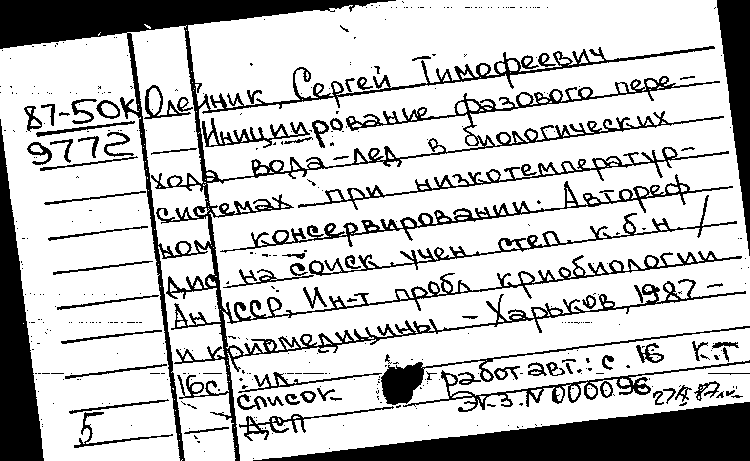 87-50К Олейник, Сергей Тимофеевич
9772 Инициирование фазового пере-
хода вода-лед в биологических
системах при низкотемператур-
ном консервировании: Автореф
дис. на соиск. учен. степ. к.б.н /
Ан УССР, Ин-т пробл криобиологии
и криомедицины - Харьков, 1987 -
16с. : ил.
Список работ авт.: с. 16 К.Т
5 ДСП Экз. N 000096